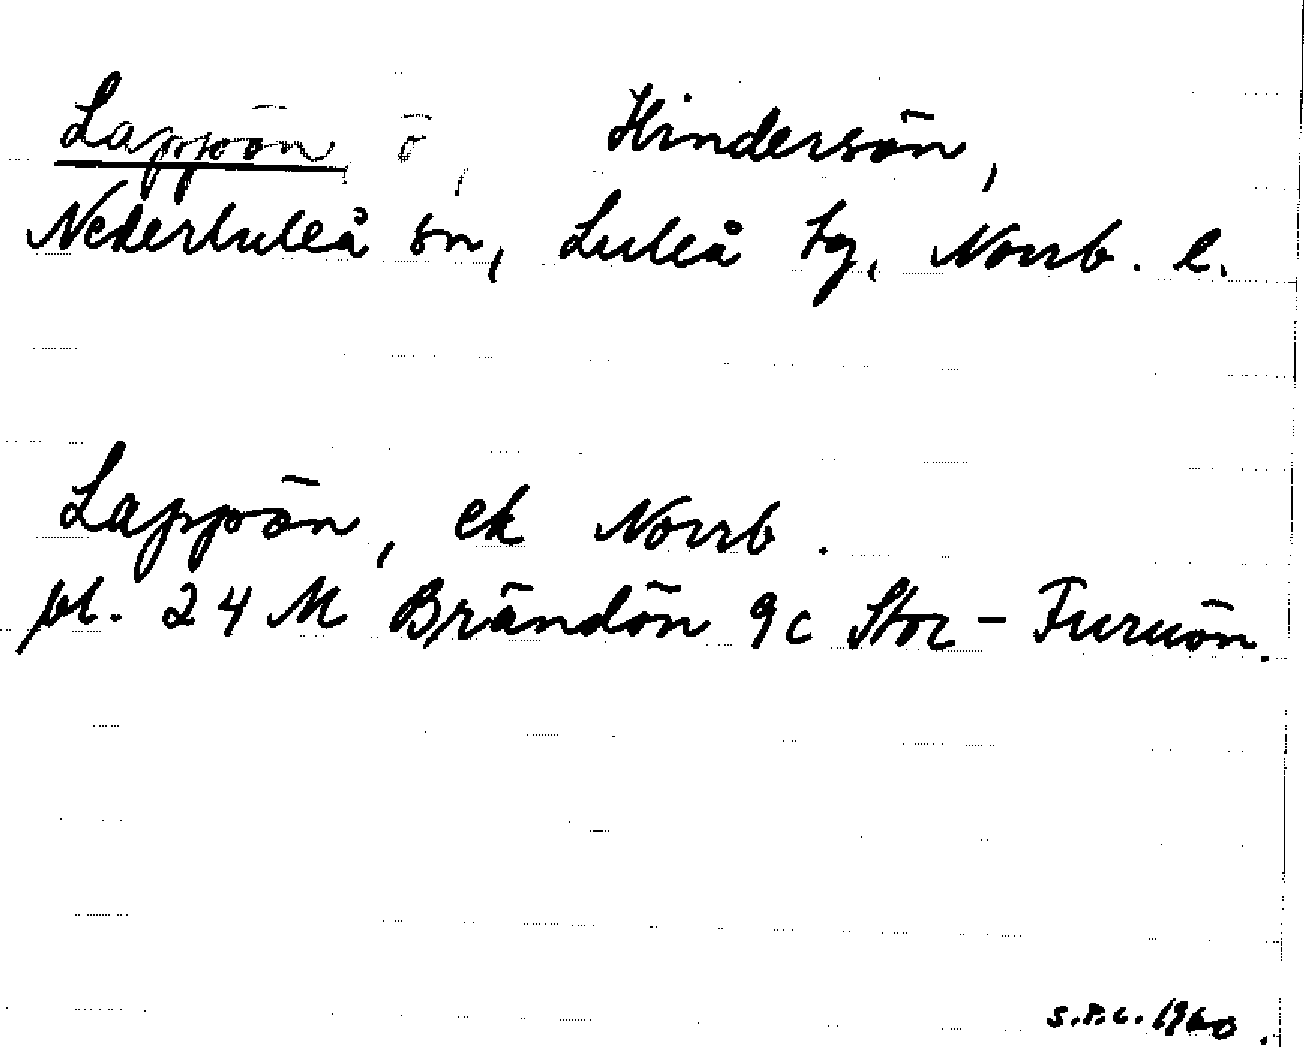 Lappön ö, Hindersön,
Nederluleå sn, Luleå tg, Norrb. l.
Lappön, ek Norrb.
bl. 24 M Brändön 9c Stor-Furuön.
1960.